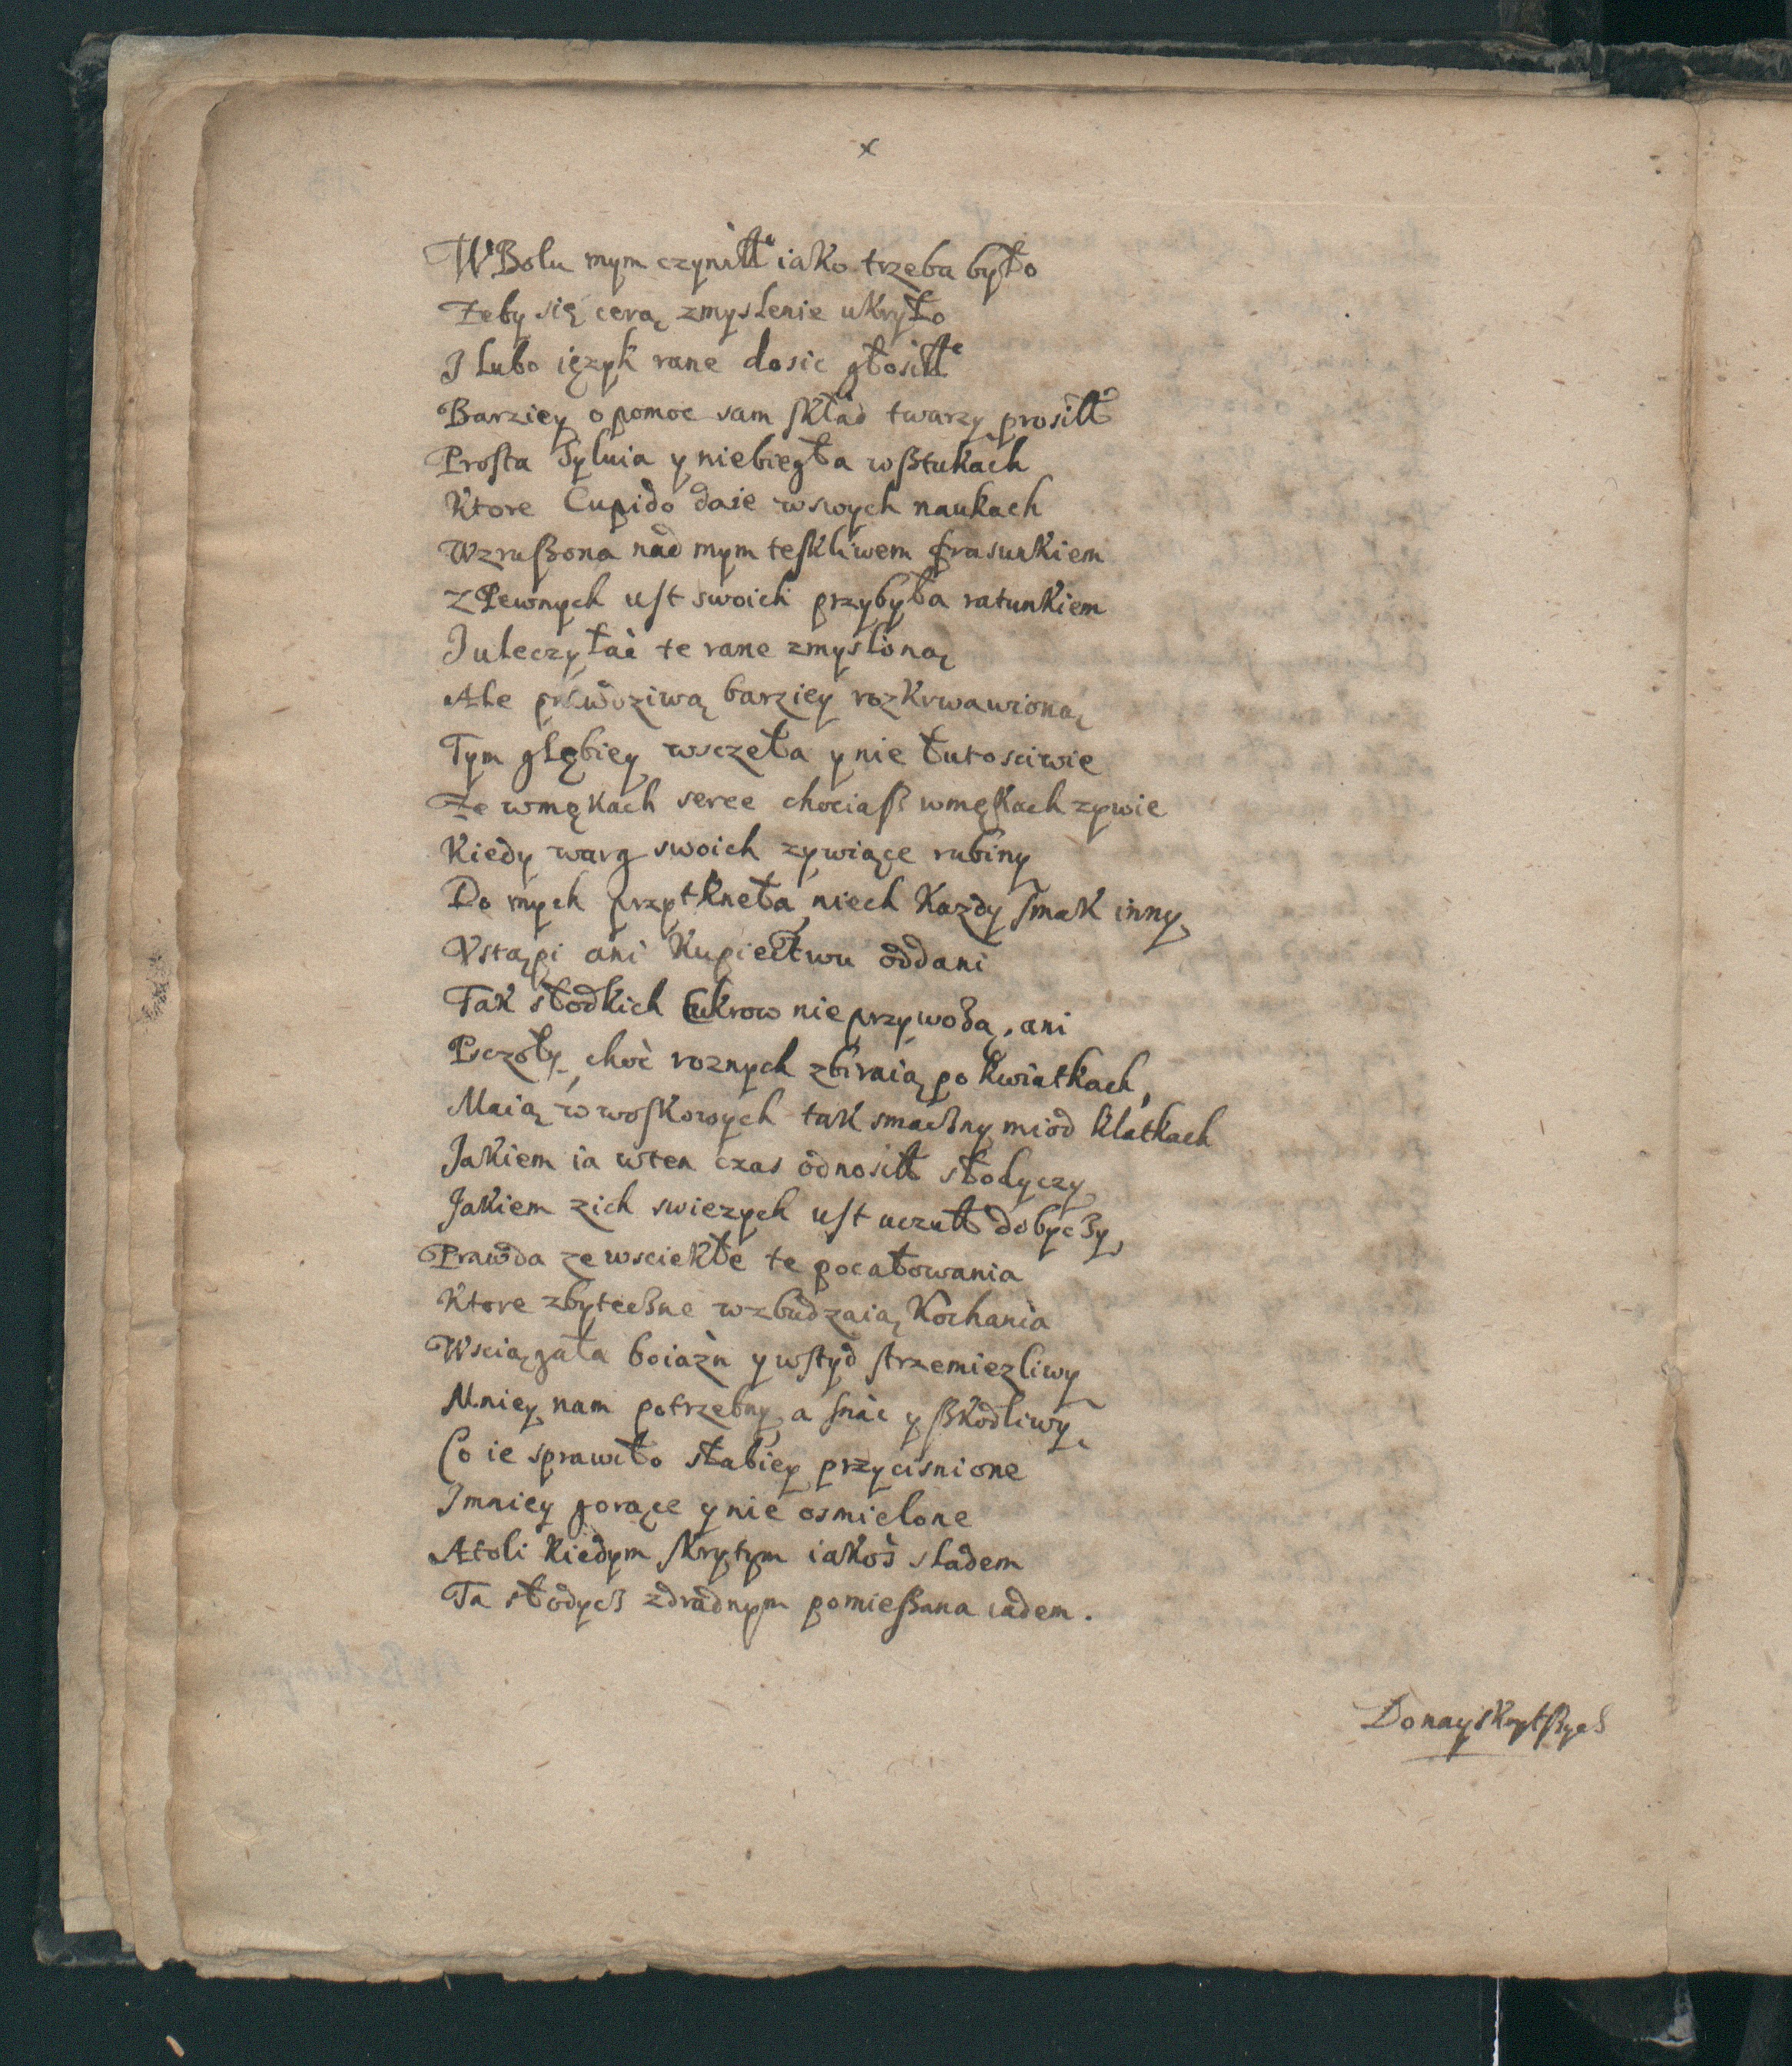 x
W Bolu mym czyniłł iako trzeba było
Zeby się cerą zmyslenie ukryło
I lubo ięzyk rane dosic głosiłł
Barziey o pomoc sam skład twarzy prosiłł
Prosta Sylvia y niebiegła wsztukach
Ktore Cupido daie wswych naukach
Wzruszona nad mym teskliwem frasunkiem
Z Pewnych ust swoich przybyła ratunkiem
I uleczyłać te rane zmysloną
Ale prawdziwą barziey rozkrwawioną
Tym głębiey wsczeła y nie lutosciwie
Że wmękach serce chociasz wmękach zywie
Kiedy warg swoich zywiące rubiny
Do mych przytkneła, niech Kazdy smak inny
Ustąpi ani Kupiectwu oddani
Tak słodkich Cukrow nie przywodą, ani
Psczoły, choć roznych zbiraią po kwiatkach,
Maią w woskowych tak smaczny miod klatkach
Jakiem ia wten czas odnosił słodyczy
Jakiem zich swiezych ust uczuł dobyczy,
Prawda ze wsciekłe te pocałowania
Ktore zbyteczne wzbudzaią Kochania
Wsciągała boiazn y wstyd strzemiezliwy
Mniey nam potrzebny a snać y szkodliwy
Co ie sprawiło słabiey przycisnione
I mniey gorące y nie osmielone
Atoli kiedym skrytym iakoś sladem
Ta słodycz zdradnym pomieszana iadem.
Do nayskrytszych